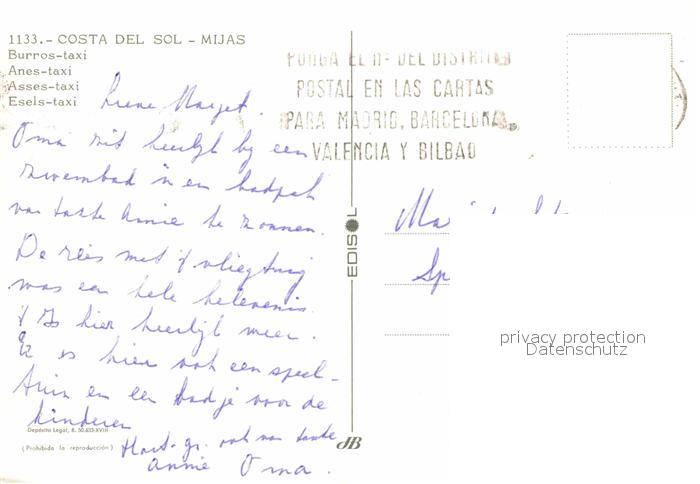 1133.- COSTA DEL SOL - MIJAS
Burros-taxi
Anes-taxi
Asses-taxi
Esels-taxi
PONGA EL Nº DEL DISTRITO
POSTAL EN LAS CARTAS
PARA MADRID, BARCELONA,
VALENCIA Y BILBAO
Lieve Margret.
Oma zit heerlijk bij een
zwembad in een badpak
van tante Annie te zonnen.
De reis met 't vliegtuig
was een hele belevenis.
't Is hier heerlijk weer.
Er is hier ook een speel-
tuin en een badje voor de
kinderen
Hart. gr. ook van tante
Annie Oma.
EDISOL
Ma
Sp
privacy protection
Datenschutz
Depósito Legal, B. 50.633-XVIII
(Prohibida la reproducción)